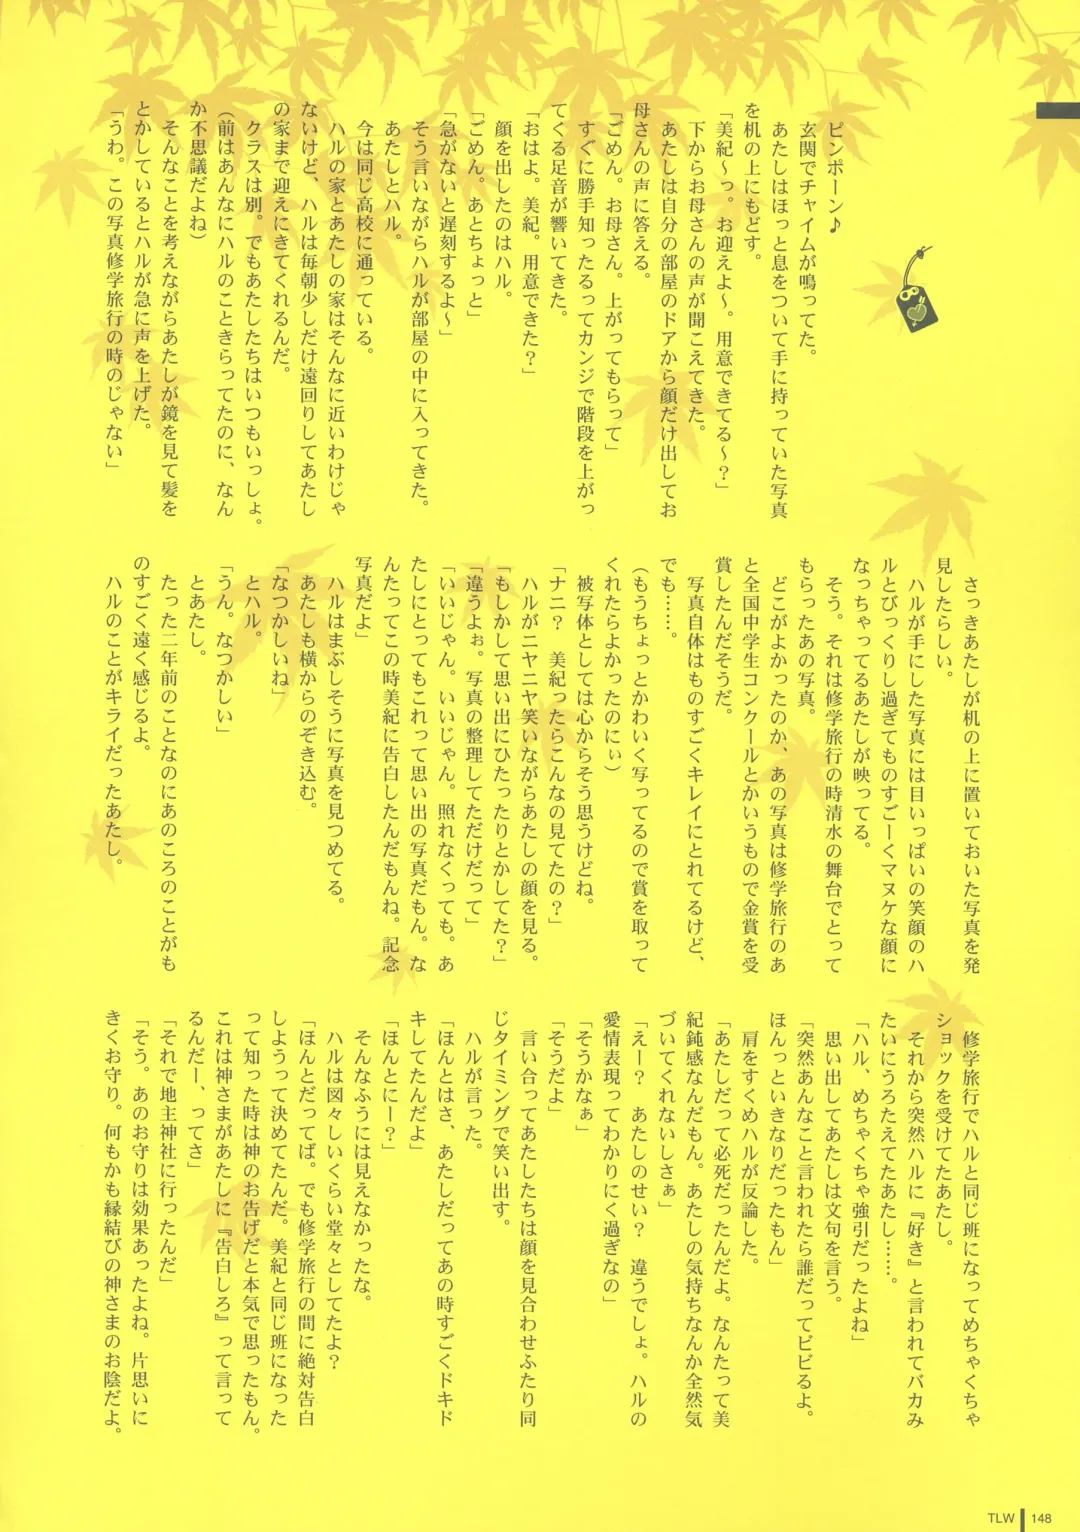 ピンポーン♪
玄関でチャイムが鳴ってた。
あたしはほっと息をついて手に持っていた写真
を机の上にもどす。
「美紀～っ。お迎えよ～。用意できてる～？」
下からお母さんの声が聞こえてきた。
あたしは自分の部屋のドアから顔だけ出してお
母さんの声に答える。
「ごめん。お母さん。上がってもらって」
すぐに勝手知ったるってカンジで階段を上がっ
てくる足音が響いてきた。
「おはよ。美紀。用意できた？」
顔を出したのはハル。
「ごめん。あとちょっと」
「急がないと遅刻するよ～」
そう言いながらハルが部屋の中に入ってきた。
あたしとハル。
今は同じ高校に通っている。
ハルの家とあたしの家はそんなに近いわけじゃ
ないけど、ハルは毎朝少しだけ遠回りしてあたし
の家まで迎えにきてくれるんだ。
クラスは別。でもあたしたちはいつもいっしょ。
（前はあんなにハルのこときらってたのに、なん
か不思議だよね）
そんなことを考えながらあたしが鏡を見て髪を
とかしているとハルが急に声を上げた。
「うわ。この写真修学旅行の時のじゃない」
さっきあたしが机の上に置いておいた写真を発
見したらしい。
ハルが手にした写真には目いっぱいの笑顔のハ
ルとびっくりし過ぎてものすごーくマヌケな顔に
なっちゃってるあたしが映ってる。
そう。それは修学旅行の時清水の舞台でとって
もらったあの写真。
どこがよかったのか、あの写真は修学旅行のあ
と全国中学生コンクールとかいうもので金賞を受
賞したんだそうだ。
写真自体はものすごくキレイにとれてるけど、
でも……。
（もうちょっとかわいく写ってるので賞を取って
くれたらよかったのにぃ）
被写体としては心からそう思うけどね。
「ナニ？　美紀ったらこんなの見てたの？」
ハルがニヤニヤ笑いながらあたしの顔を見る。
「もしかして思い出にひたったりとかしてた？」
「違うよぉ。写真の整理してただけだって」
「いいじゃん。いいじゃん。照れなくっても。あ
たしにとってもこれって思い出の写真だもん。な
んたってこの時美紀に告白したんだもんね。記念
写真だよ」
ハルはまぶしそうに写真を見つめてる。
あたしも横からのぞき込む。
「なつかしいね」
とハル。
「うん。なつかしい」
とあたし。
たった二年前のことなのにあのころのことがも
のすごく遠く感じるよ。
ハルのことがキライだったあたし。
修学旅行でハルと同じ班になってめちゃくちゃ
ショックを受けてたあたし。
それから突然ハルに『好き』と言われてバカみ
たいにうろたえてたあたし……。
「ハル、めちゃくちゃ強引だったよね」
思い出してあたしは文句を言う。
「突然あんなこと言われたら誰だってビビるよ。
ほんっといきなりだったもん」
肩をすくめハルが反論した。
「あたしだって必死だったんだよ。なんたって美
紀鈍感なんだもん。あたしの気持ちなんか全然気
づいてくれないしさぁ」
「えー？　あたしのせい？　違うでしょ。ハルの
愛情表現ってわかりにく過ぎなの」
「そうかなぁ」
「そうだよ」
言い合ってあたしたちは顔を見合わせふたり同
じタイミングで笑い出す。
ハルが言った。
「ほんとはさ、あたしだってあの時すごくドキド
キしてたんだよ」
「ほんとにー？」
そんなふうには見えなかったな。
ハルは図々しいくらい堂々としてたよ？
「ほんとだってば。でも修学旅行の間に絶対告白
しようって決めてたんだ。美紀と同じ班になった
って知った時は神のお告げだと本気で思ったもん。
これは神さまがあたしに『告白しろ』って言って
るんだー、ってさ」
「それで地主神社に行ったんだ」
「そう。あのお守りは効果あったよね。片思いに
きくお守り。何もかも縁結びの神さまのお陰だよ。
TLW 148